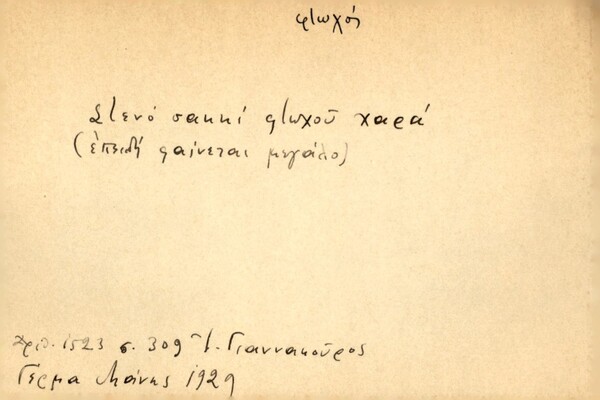 φτωχός
Στενό σακκί φτωχοῦ χαρά
(ἐπειδή φαίνεται μεγάλο)
Ἀριθ. 1523 σ. 309 Γιαννακοῦρος
Γέρμα Μάνης 1929